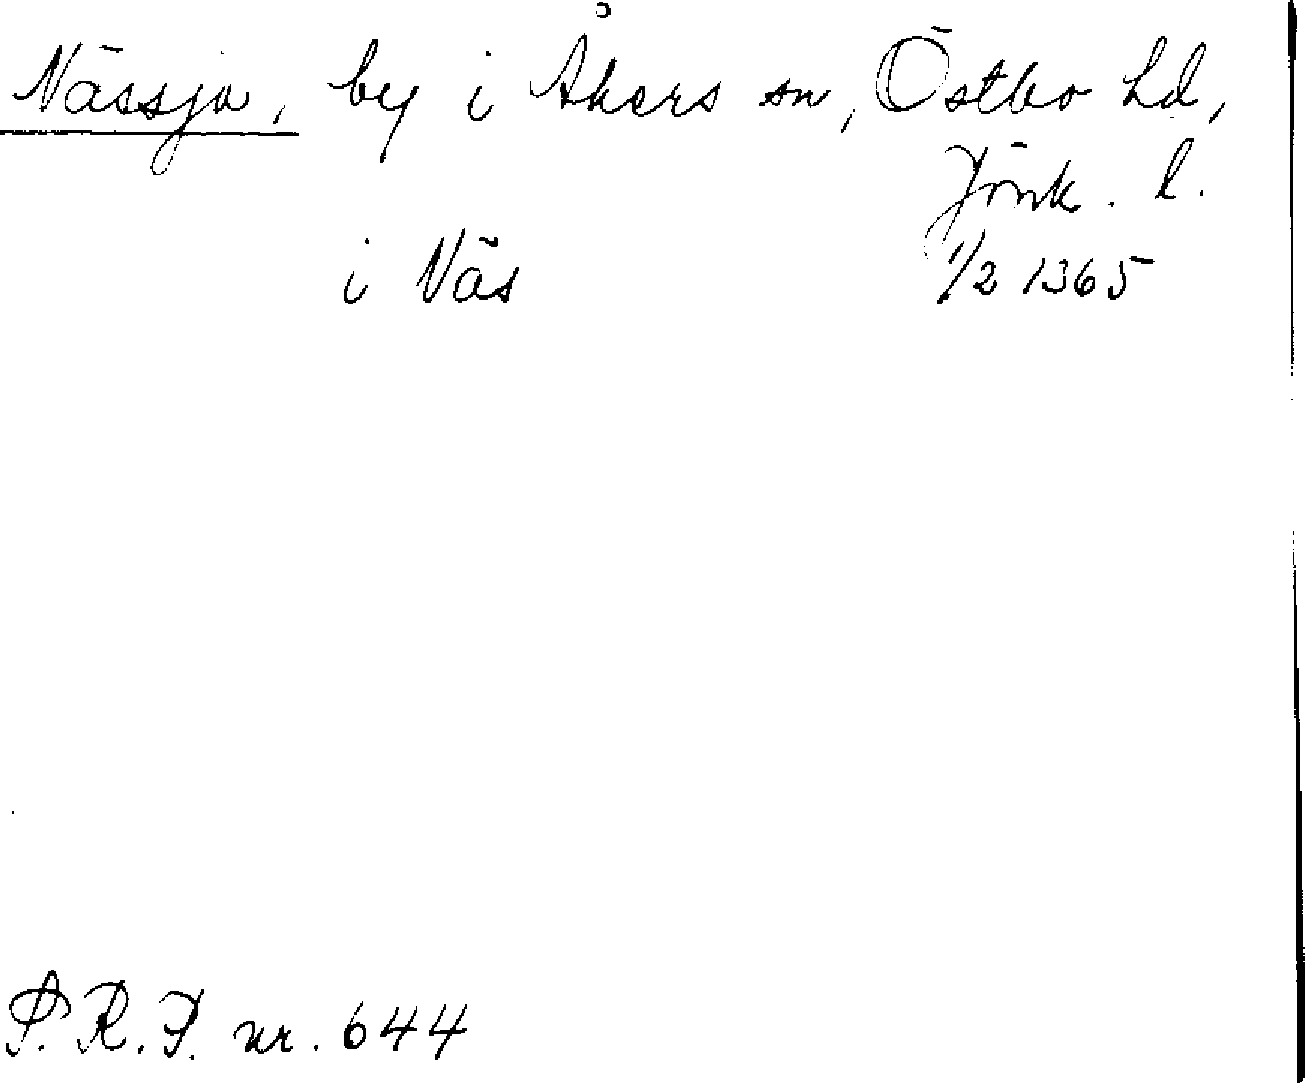 Nässja, by i Åkers sn, Östbo hd,
Jönk. l.
i Näs 1/2 1365
P. R. P. nr. 644